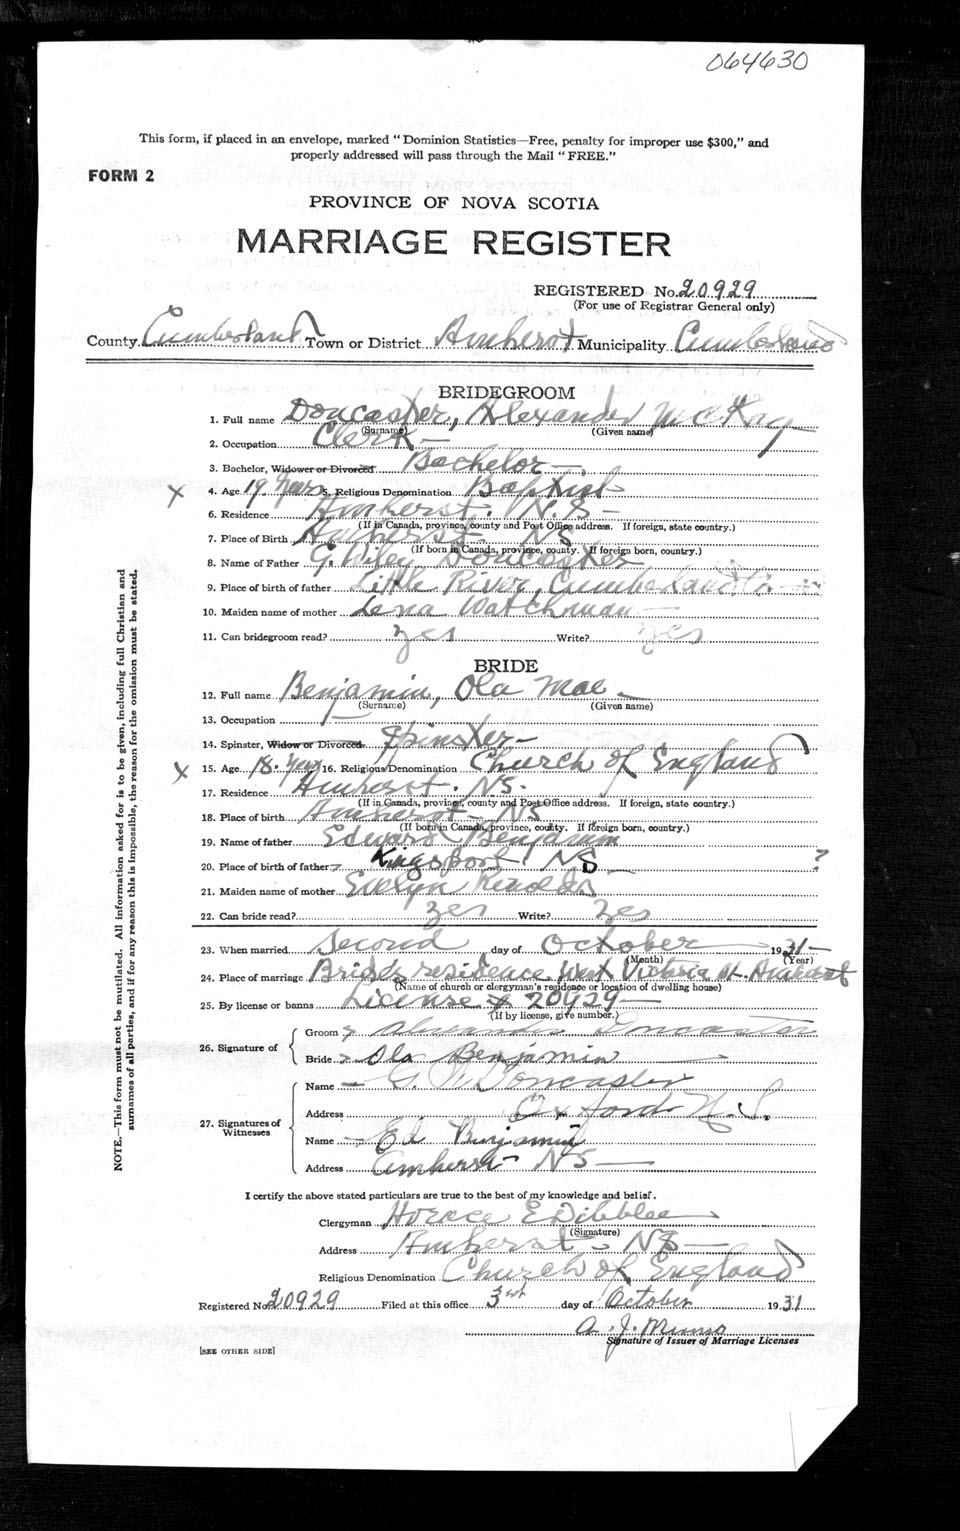 064630
This form, if placed in an envelope, marked "Dominion Statistics—Free, penalty for improper use $300," and
properly addressed will pass through the Mail "FREE."
FORM 2
PROVINCE OF NOVA SCOTIA
MARRIAGE REGISTER
REGISTERED No. 20929
(For use of Registrar General only)
County Cumberland Town or District Amherst Municipality Cumberland
BRIDEGROOM
1. Full name Doncaster, Alexander McKay
(Surname) (Given name)
2. Occupation Clerk —
3. Bachelor, Widower or Divorced Bachelor —
x 4. Age 19 Years 5. Religious Denomination Baptist
6. Residence Amherst. N.S —
(If in Canada, province, county and Post Office address. If foreign, state country.)
7. Place of Birth Amherst NS
(If born in Canada, province, county. If foreign born, country.)
8. Name of Father G. Wiley Doncaster
9. Place of birth of father Little River, Cumberland Co.
10. Maiden name of mother Lena Watchman —
11. Can bridegroom read? yes Write? yes
BRIDE
12. Full name Benjamin, Ola Mae —
(Surname) (Given name)
13. Occupation —
14. Spinster, Widow or Divorced Spinster —
x 15. Age 18. Years 16. Religious Denomination Church of England
17. Residence Amherst. NS.
(If in Canada, province, county and Post Office address. If foreign, state country.)
18. Place of birth Amherst — NS
(If born in Canada, province, county. If foreign born, country.)
19. Name of father Edward Benjamin
20. Place of birth of father Kingsport NS ?
21. Maiden name of mother Evelyn
22. Can bride read? yes Write? yes
23. When married Second day of October 1931 —
(Month) (Year)
24. Place of marriage Bride's residence West Victoria St. Amherst
(Name of church or clergyman's residence or location of dwelling house)
25. By license or banns License # 20929 —
(If by license, give number.)
26. Signature of
Groom Alexander Doncaster
Bride Ola Benjamin
27. Signatures of Witnesses
Name — G. W. Doncaster
Address Oxford N.S.
Name — Ed Benjamin
Address Amherst NS —
I certify the above stated particulars are true to the best of my knowledge and belief.
Clergyman Horace E Dibblee
(Signature)
Address Amherst — NS —
Religious Denomination Church of England
Registered No. 20929 Filed at this office 3rd day of October 1931
A. J. Munro
Signature of Issuer of Marriage Licenses
[SEE OTHER SIDE]
NOTE.—This form must not be mutilated. All information asked for is to be given, including full Christian and
surnames of all parties, and if for any reason this is impossible, the reason for the omission must be stated.